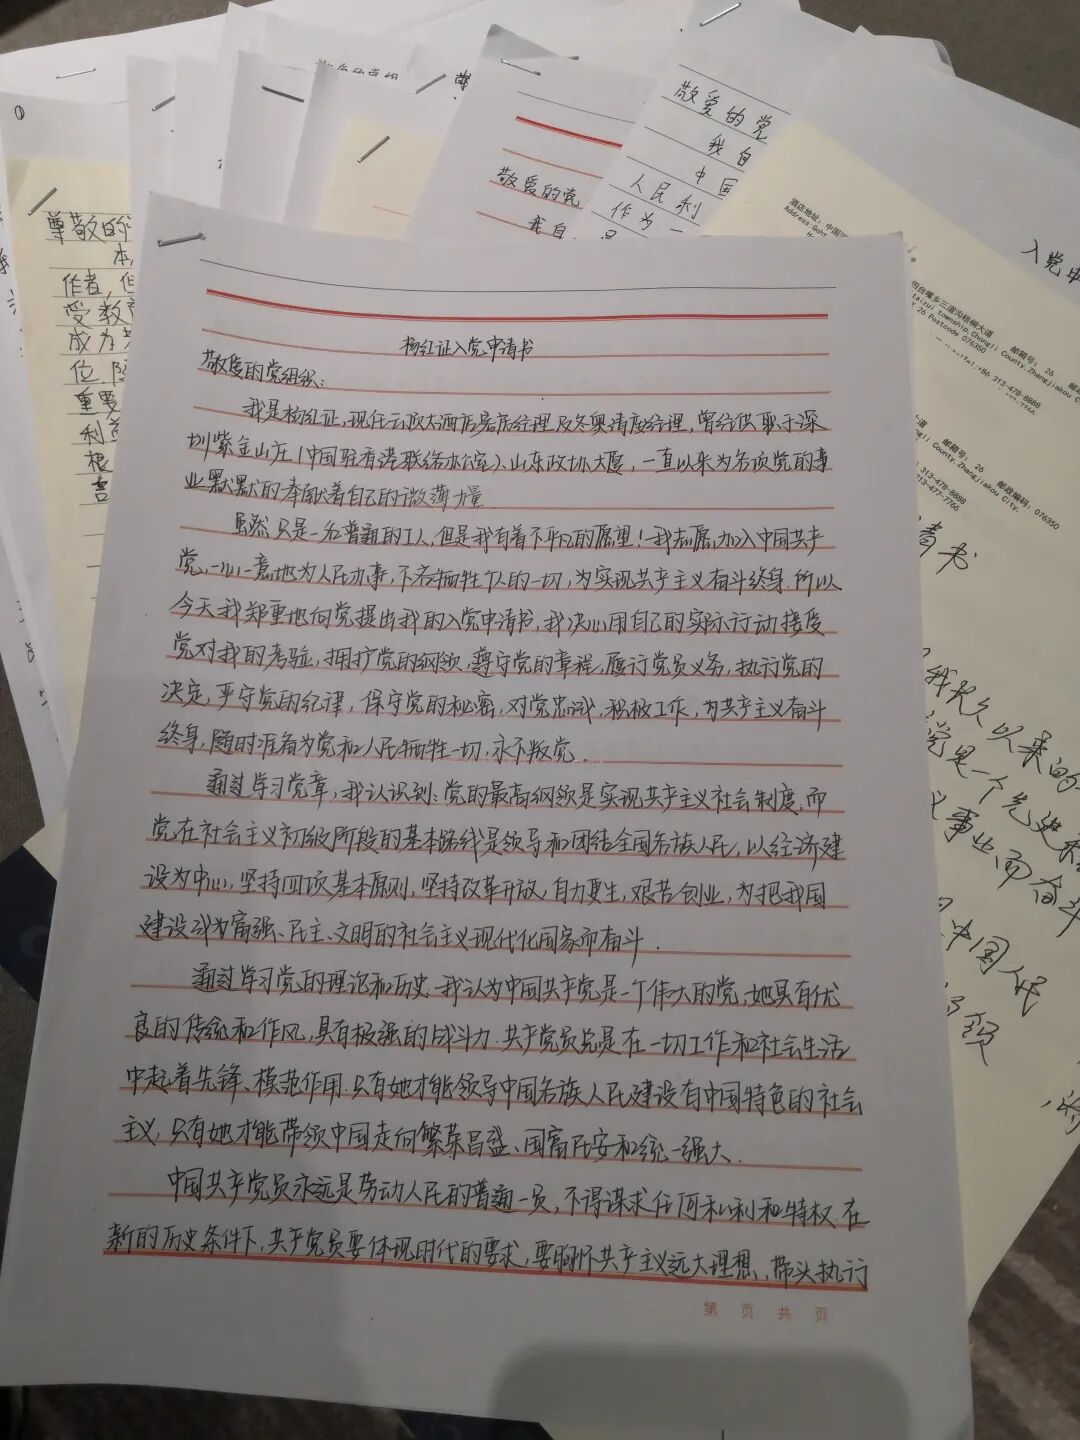 杨红证入党申请书
敬爱的党组织：
我是杨红证，现任云顶大酒店客房经理及冬奥清废经理，曾经供职于深
圳紫金山庄（中国驻香港联络办公室）、山东政协大厦，一直以来为各项党的事
业默默的奉献着自己的微薄力量
虽然只是一名普通的工人，但是我有着不平凡的愿望！我志愿加入中国共产
党，一心一意地为人民办事，不吝牺牲个人的一切，为实现共产主义奋斗终身.所以
今天我郑重地向党提出我的入党申请书，我决心用自己的实际行动接受
党对我的考验，拥护党的纲领，遵守党的章程，履行党员义务，执行党的
决定，严守党的纪律，保守党的秘密，对党忠诚，积极工作，为共产主义奋斗
终身，随时准备为党和人民牺牲一切，永不叛党.
通过学习党章，我认识到：党的最高纲领是实现共产主义社会制度，而
党在社会主义初级阶段的基本路线是领导和团结全国各族人民，以经济建
设为中心，坚持四项基本原则，坚持改革开放，自力更生，艰苦创业，为把我国
建设成为富强、民主、文明的社会主义现代化国家而奋斗.
通过学习党的理论和历史，我认为中国共产党是一个伟大的党，她具有优
良的传统和作风，具有极强的战斗力.共产党员总是在一切工作和社会生活
中起着先锋、模范作用.只有她才能领导中国各族人民建设有中国特色的社会
主义，只有她才能带领中国走向繁荣昌盛、国富民安和统一强大.
中国共产党员永远是劳动人民的普通一员，不得谋求任何私利和特权.在
新的历史条件下，共产党员要体现时代的要求，要胸怀共产主义远大理想，带头执行
第 页 共 页
尊敬的
作者，但
受教
成为
位
重要
根
敬爱的党
我自
敬爱的党
我自
中国
人民利
作为一
入党申
酒店地址：中国
邮箱号：26
Chongli County,Zhangjiakou
Y 26 Postcode 076350
+86 313-478-8888
邮箱号：26
邮政编码：076350
County,Zhangjiakou City,
313-478-8888
313-477-7766
请书
我长久以来的
党是一个先进
事业而奋斗
中国人民